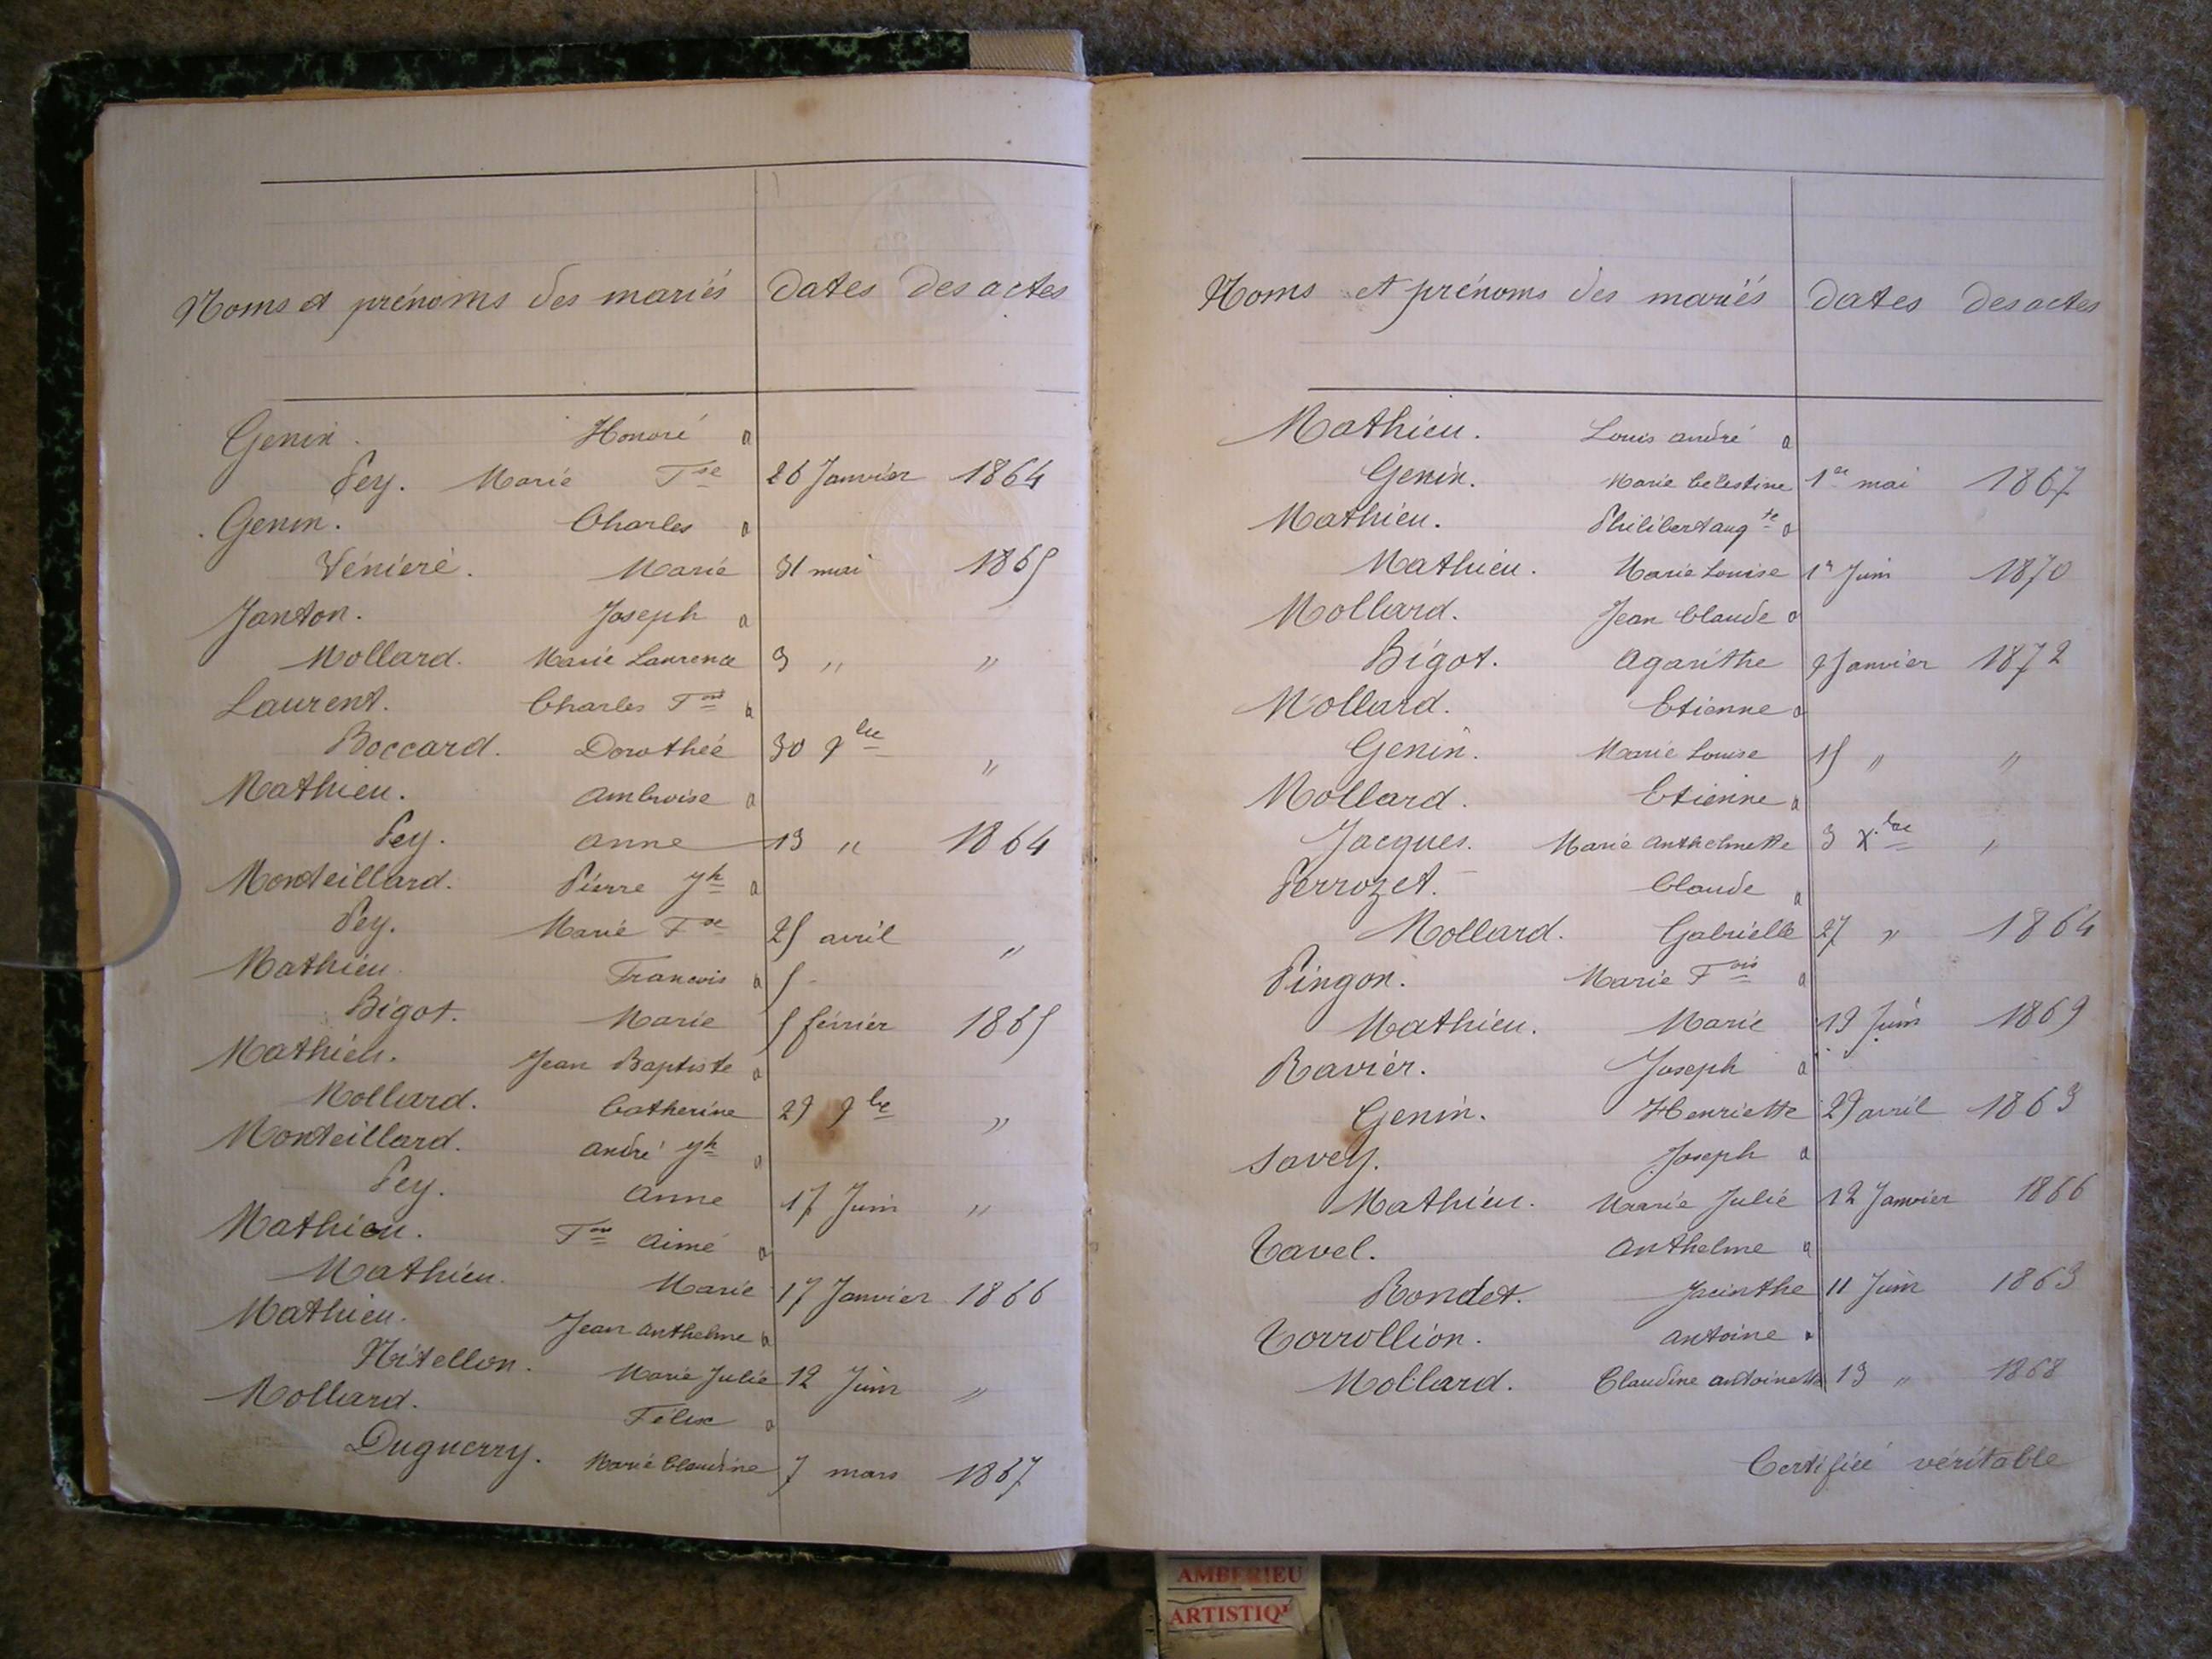 Noms et prénoms des mariés dates des actes
Genin. Honoré a
Pey. Marie Tse 26 Janvier 1864
Genin. Charles a
Vénieré. Marie 31 mai 1865
Janton. Joseph a
Mollard. Marie Laurence 3 " "
Laurent. Charles a
Boccard. Dorothée 30 9bre "
Mathieu. Ambroise a
Pey. Anne 13 " 1864
Monteillard. Pierre yh a
Pey. Marie Fse 25 avril "
Mathieu. Francois a 5
Bigot. Marie 5 février 1865
Mathieu. Jean Baptiste a
Mollard. Catherine 29 9bre "
Monteillard. André yh a
Pey. Anne 17 Juin "
Mathieu. Aimé a
Mathieu. Marie 17 Janvier 1866
Mathieu. Jean Anthelme a
Nitellon. Marie Julie 12 Juin "
Mollard. Félix a
Duguerry. Marie Claudine 7 mars 1867
Noms et prénoms des mariés dates des actes
Mathieu. Louis André a
Genin. Marie Celestine 1er mai 1867
Mathieu. Philibert augte a
Mathieu. Marie Louise 1r Juin 1870
Mollard. Jean Claude a
Bigot. Agarithe 9 Janvier 1872
Mollard. Etienne a
Genin. Marie Louise 15 " "
Mollard. Etienne a
Jacques. Marie Anthelmette 3 Xbre "
Perrozet. Claude a
Mollard. Gabrielle 27 " 1864
Pingon. Marie Fois a
Mathieu. Marie 19 Juin 1869
Ravier. Joseph a
Genin. Henriette 29 avril 1863
Savey. Joseph a
Mathieu. Marie Julie 12 Janvier 1866
Tavel. Anthelme a
Rondet. Jacinthe 11 Juin 1863
Torrollion. Antoine a
Mollard. Claudine Antoinette 13 " 1868
Certifiée véritable
AMBERIEU
ARTISTIQ